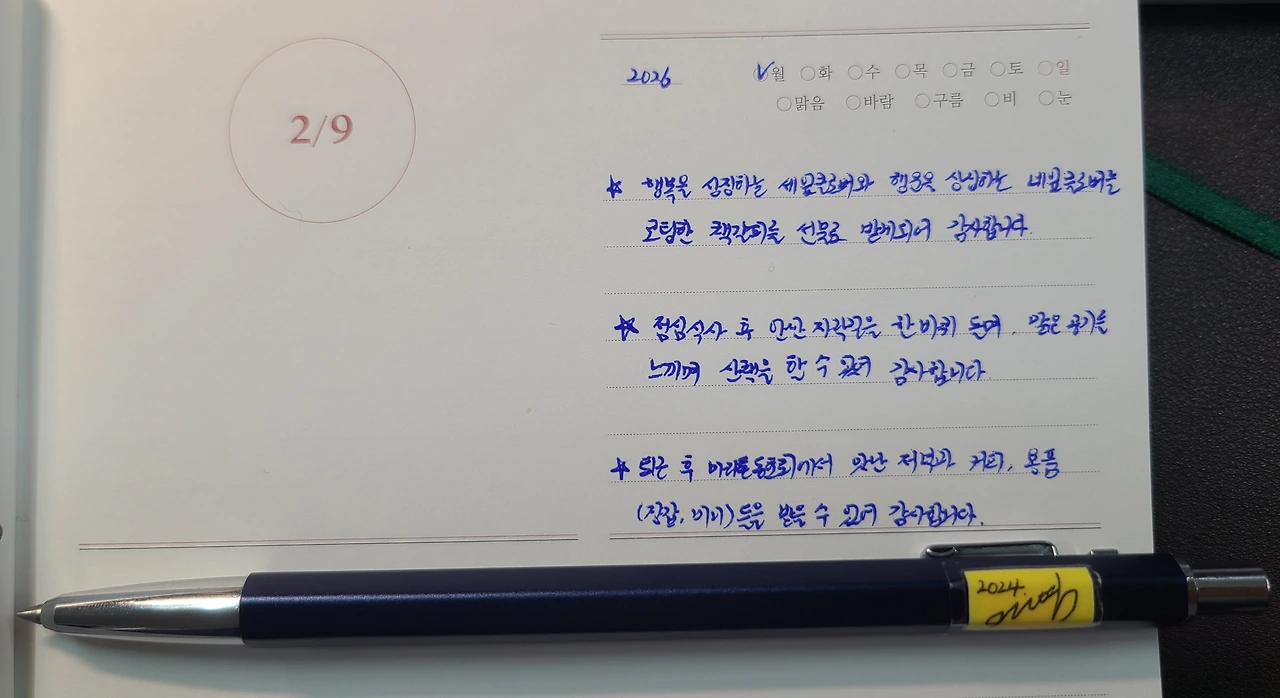 2/9
2026
월 화 수 목 금 토 일
맑음 바람 구름 비 눈
행복을 상징하는 세잎클로버와 행운을 상징하는 네잎클로버를
코팅한 책갈피를 선물로 받게되어 감사합니다.
점심식사 후 안산 자락길을 한 바퀴 돌며, 맑은 공기를
느끼며 산책을 할 수 있어 감사합니다.
퇴근 후 에서 맛난 저녁과 커피, 용품
(장갑, 비니)등을 받을 수 있어 감사합니다.
2024.